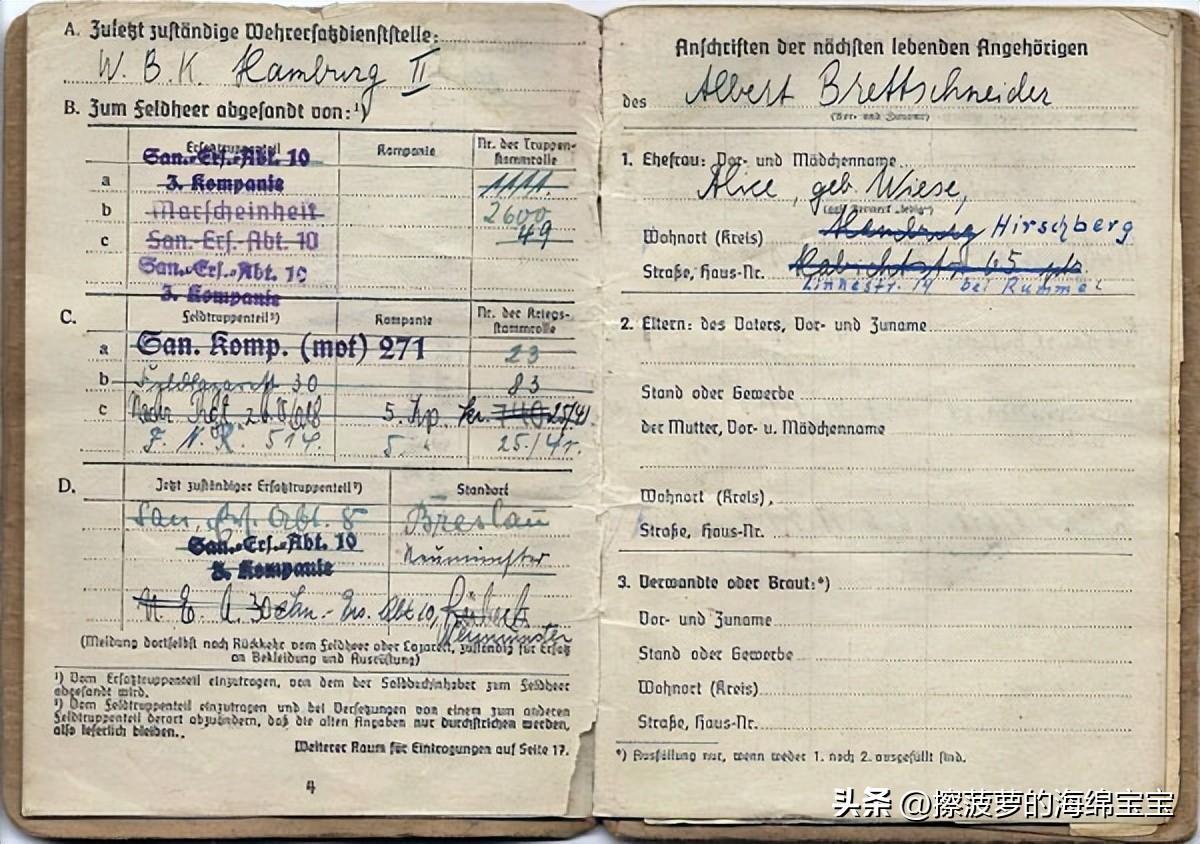 A. Zuletzt zuständige Wehrersatzdienststelle:
W. B. K. Hamburg II
B. Zum Feldheer abgesandt von:¹)
Ersatztruppenteil Kompanie Nr. der Truppen-
stammrolle
San.-Ers.-Abt. 10
a 3. Kompanie 1111.
b Marscheinheit 2600
c San.-Ers.-Abt. 10 49
San.-Ers.-Abt. 10
3. Kompanie
C. Feldtruppenteil²) Kompanie Nr. der Kriegs-
stammrolle
a San. Komp. (mot) 271 23
b Feldlazarett 30 83
c 5. Kp. 25/41
5 25/41.
D. Jetzt zuständiger Ersatztruppenteil²) Standort
San. Ers. Abt. 8 Breslau
San.-Ers.-Abt. 10 Neumünster
3. Kompanie
N. E. A. 30 San.-Ers. Abt 10, Lübeck
Neumünster
(Meldung dortselbst nach Rückkehr vom Feldheer oder Lazarett, zuständig für Ersatz
an Bekleidung und Ausrüstung)
¹) Vom Ersatztruppenteil einzutragen, von dem der Soldbuchinhaber zum Feldheer
abgesandt wird.
²) Vom Feldtruppenteil einzutragen und bei Versetzungen von einem zum anderen
Feldtruppenteil derart abzuändern, daß die alten Angaben nur durchstrichen werden,
also leserlich bleiben.
Weiterer Raum für Eintragungen auf Seite 17.
4
Anschriften der nächsten lebenden Angehörigen
des Albert Brettschneider
(Vor- und Zuname)
1. Ehefrau: Vor- und Mädchenname
Alice, geb. Wiese,
(ggf. Vermerk „ledig“)
Wohnort (Kreis) Hamburg Hirschberg
Straße, Haus-Nr. Habichtstr. 65 ptr.
Linnestr. 14 bei Rummel
2. Eltern: des Vaters, Vor- und Zuname
Stand oder Gewerbe
der Mutter, Vor- u. Mädchenname
Wohnort (Kreis)
Straße, Haus-Nr.
3. Verwandte oder Braut:*)
Vor- und Zuname
Stand oder Gewerbe
Wohnort (Kreis)
Straße, Haus-Nr.
*) Ausfüllung nur, wenn weder 1. noch 2. ausgefüllt sind.
头条 @擦菠萝的海绵宝宝